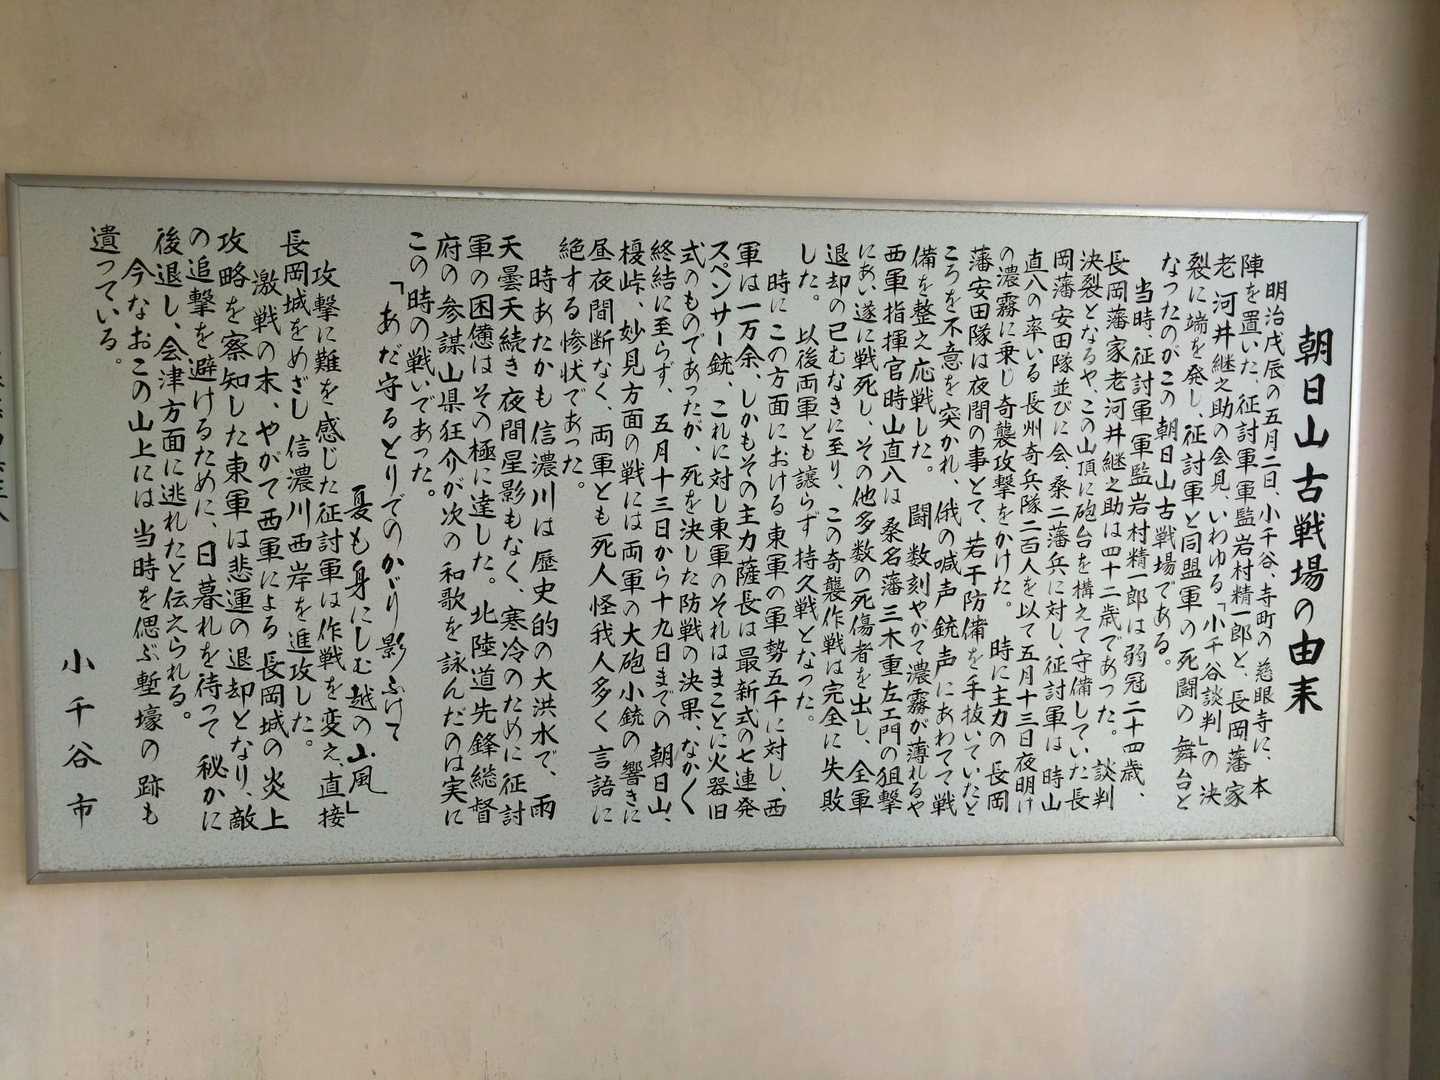 朝日山古戦場の由来
明治戊辰の五月二日、小千谷、寺町の慈眼寺に、本
陣を置いた、征討軍軍監岩村精一郎と、長岡藩家
老河井継之助の会見、いわゆる「小千谷談判」の決
裂に端を発し、征討軍と同盟軍の死闘の舞台と
なったのがこの朝日山古戦場である。
当時、征討軍軍監岩村精一郎は弱冠二十四歳、
長岡藩家老河井継之助は四十二歳であった。談判
決裂となるや、この山頂に砲台を構えて守備していた長
岡藩安田隊並びに会、桑二藩兵に対し、征討軍は時山
直八の率いる長州奇兵隊二百人を以て五月十三日夜明け
の濃霧に乗じ奇襲攻撃をかけた。時に主力の長岡
藩安田隊は夜間の事とて、若干防備を手抜いていたと
ころを不意を突かれ、俄の喊声銃声にあわてて戦
備を整え応戦した。闘数刻やがて濃霧が薄れるや
西軍指揮官時山直八は桑名藩三木重左エ門の狙撃
にあい遂に戦死し、その他多数の死傷者を出し、全軍
退却の已むなきに至り、この奇襲作戦は完全に失敗
した。以後両軍とも譲らず持久戦となった。
時にこの方面における東軍の軍勢五千に対し、西
軍は一万余、しかもその主力薩長は最新式の七連発
スペンサー銃、これに対し東軍のそれはまことに火器旧
式のものであったが、死を決した防戦の決果、なか〱
終結に至らず、五月十三日から十九日までの朝日山、
榎峠、妙見方面の戦には両軍の大砲小銃の響きに
昼夜間断なく、両軍とも死人怪我人多く言語に
絶する惨状であった。
時あたかも信濃川は歴史的の大洪水で、雨
天曇天続き夜間星影もなく、寒冷のために征討
軍の困憊はその極に達した。北陸道先鋒総督
府の参謀山県狂介が次の和歌を詠んだのは実に
この時の戦いであった。
「あだ守るとりでのかゞり影ふけて
夏も身にしむ越の山風」
攻撃に難を感じた征討軍は作戦を変え、直接
長岡城をめざし信濃川西岸を進攻した。
激戦の末、やがて西軍による長岡城の炎上
攻略を察知した東軍は悲運の退却となり、敵
の追撃を避けるために、日暮れを待って秘かに
後退し、会津方面に逃れたと伝えられる。
今なおこの山上には当時を偲ぶ塹壕の跡も
遺っている。
小千谷市